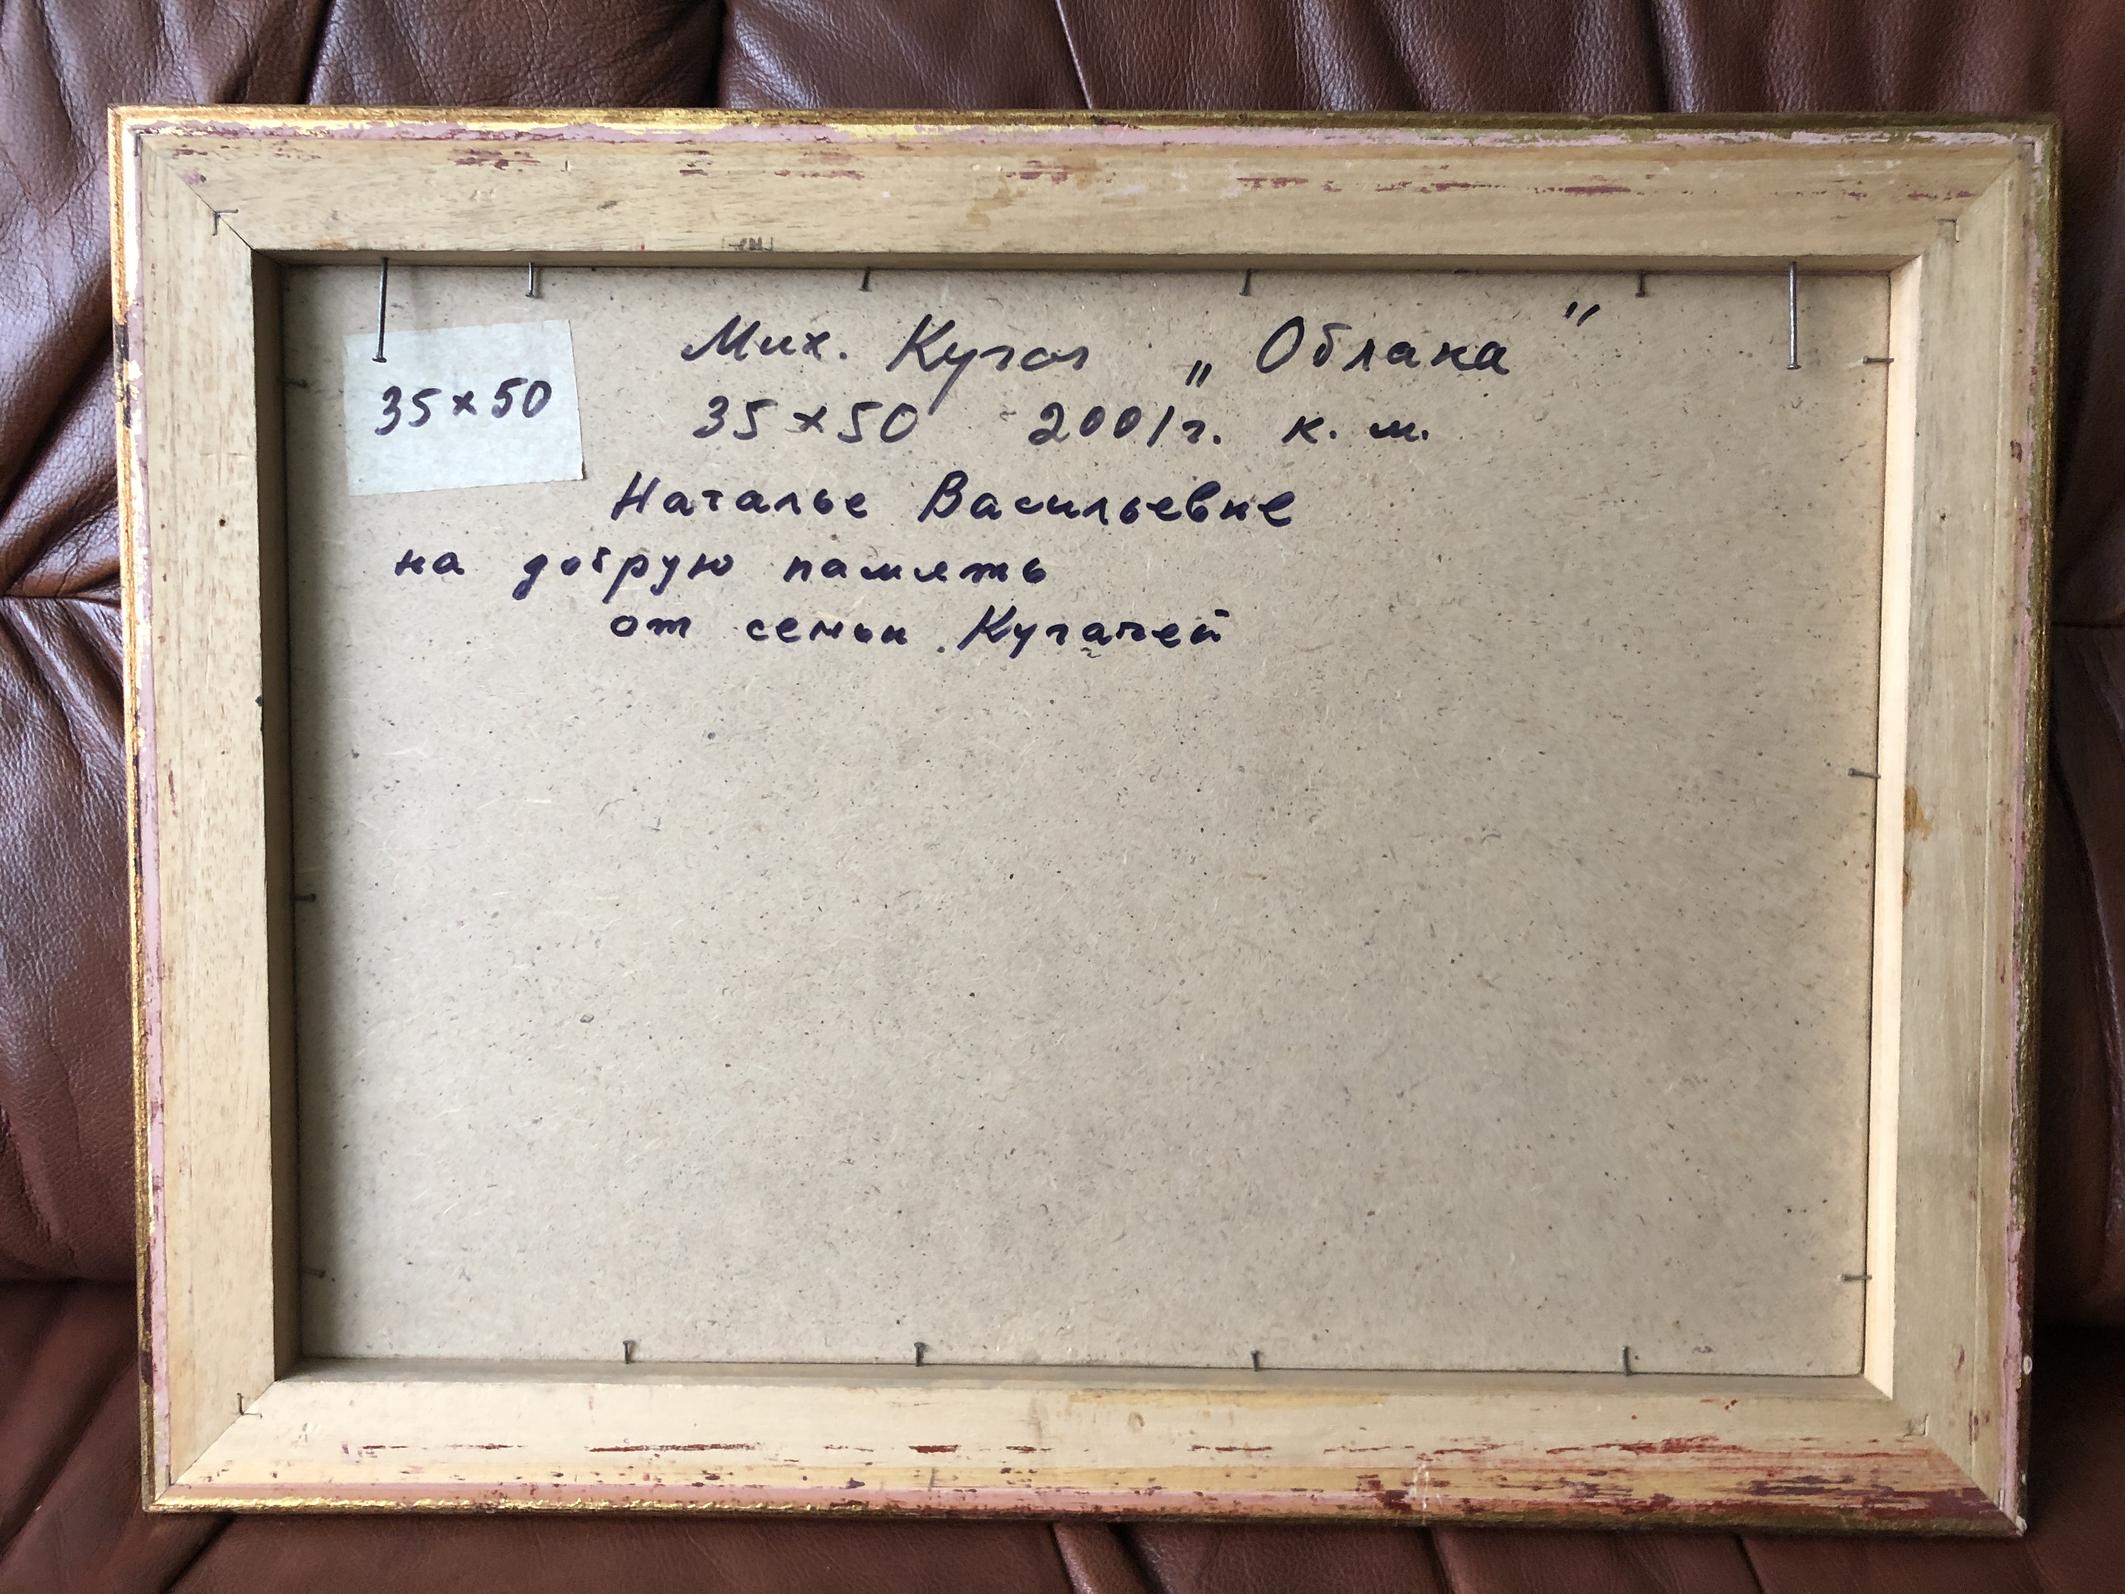 35×50
Мих. Кугач „Облака"
35×50 2001г. к. м.
Наталье Васильевне
на добрую память
от семьи Кугачей